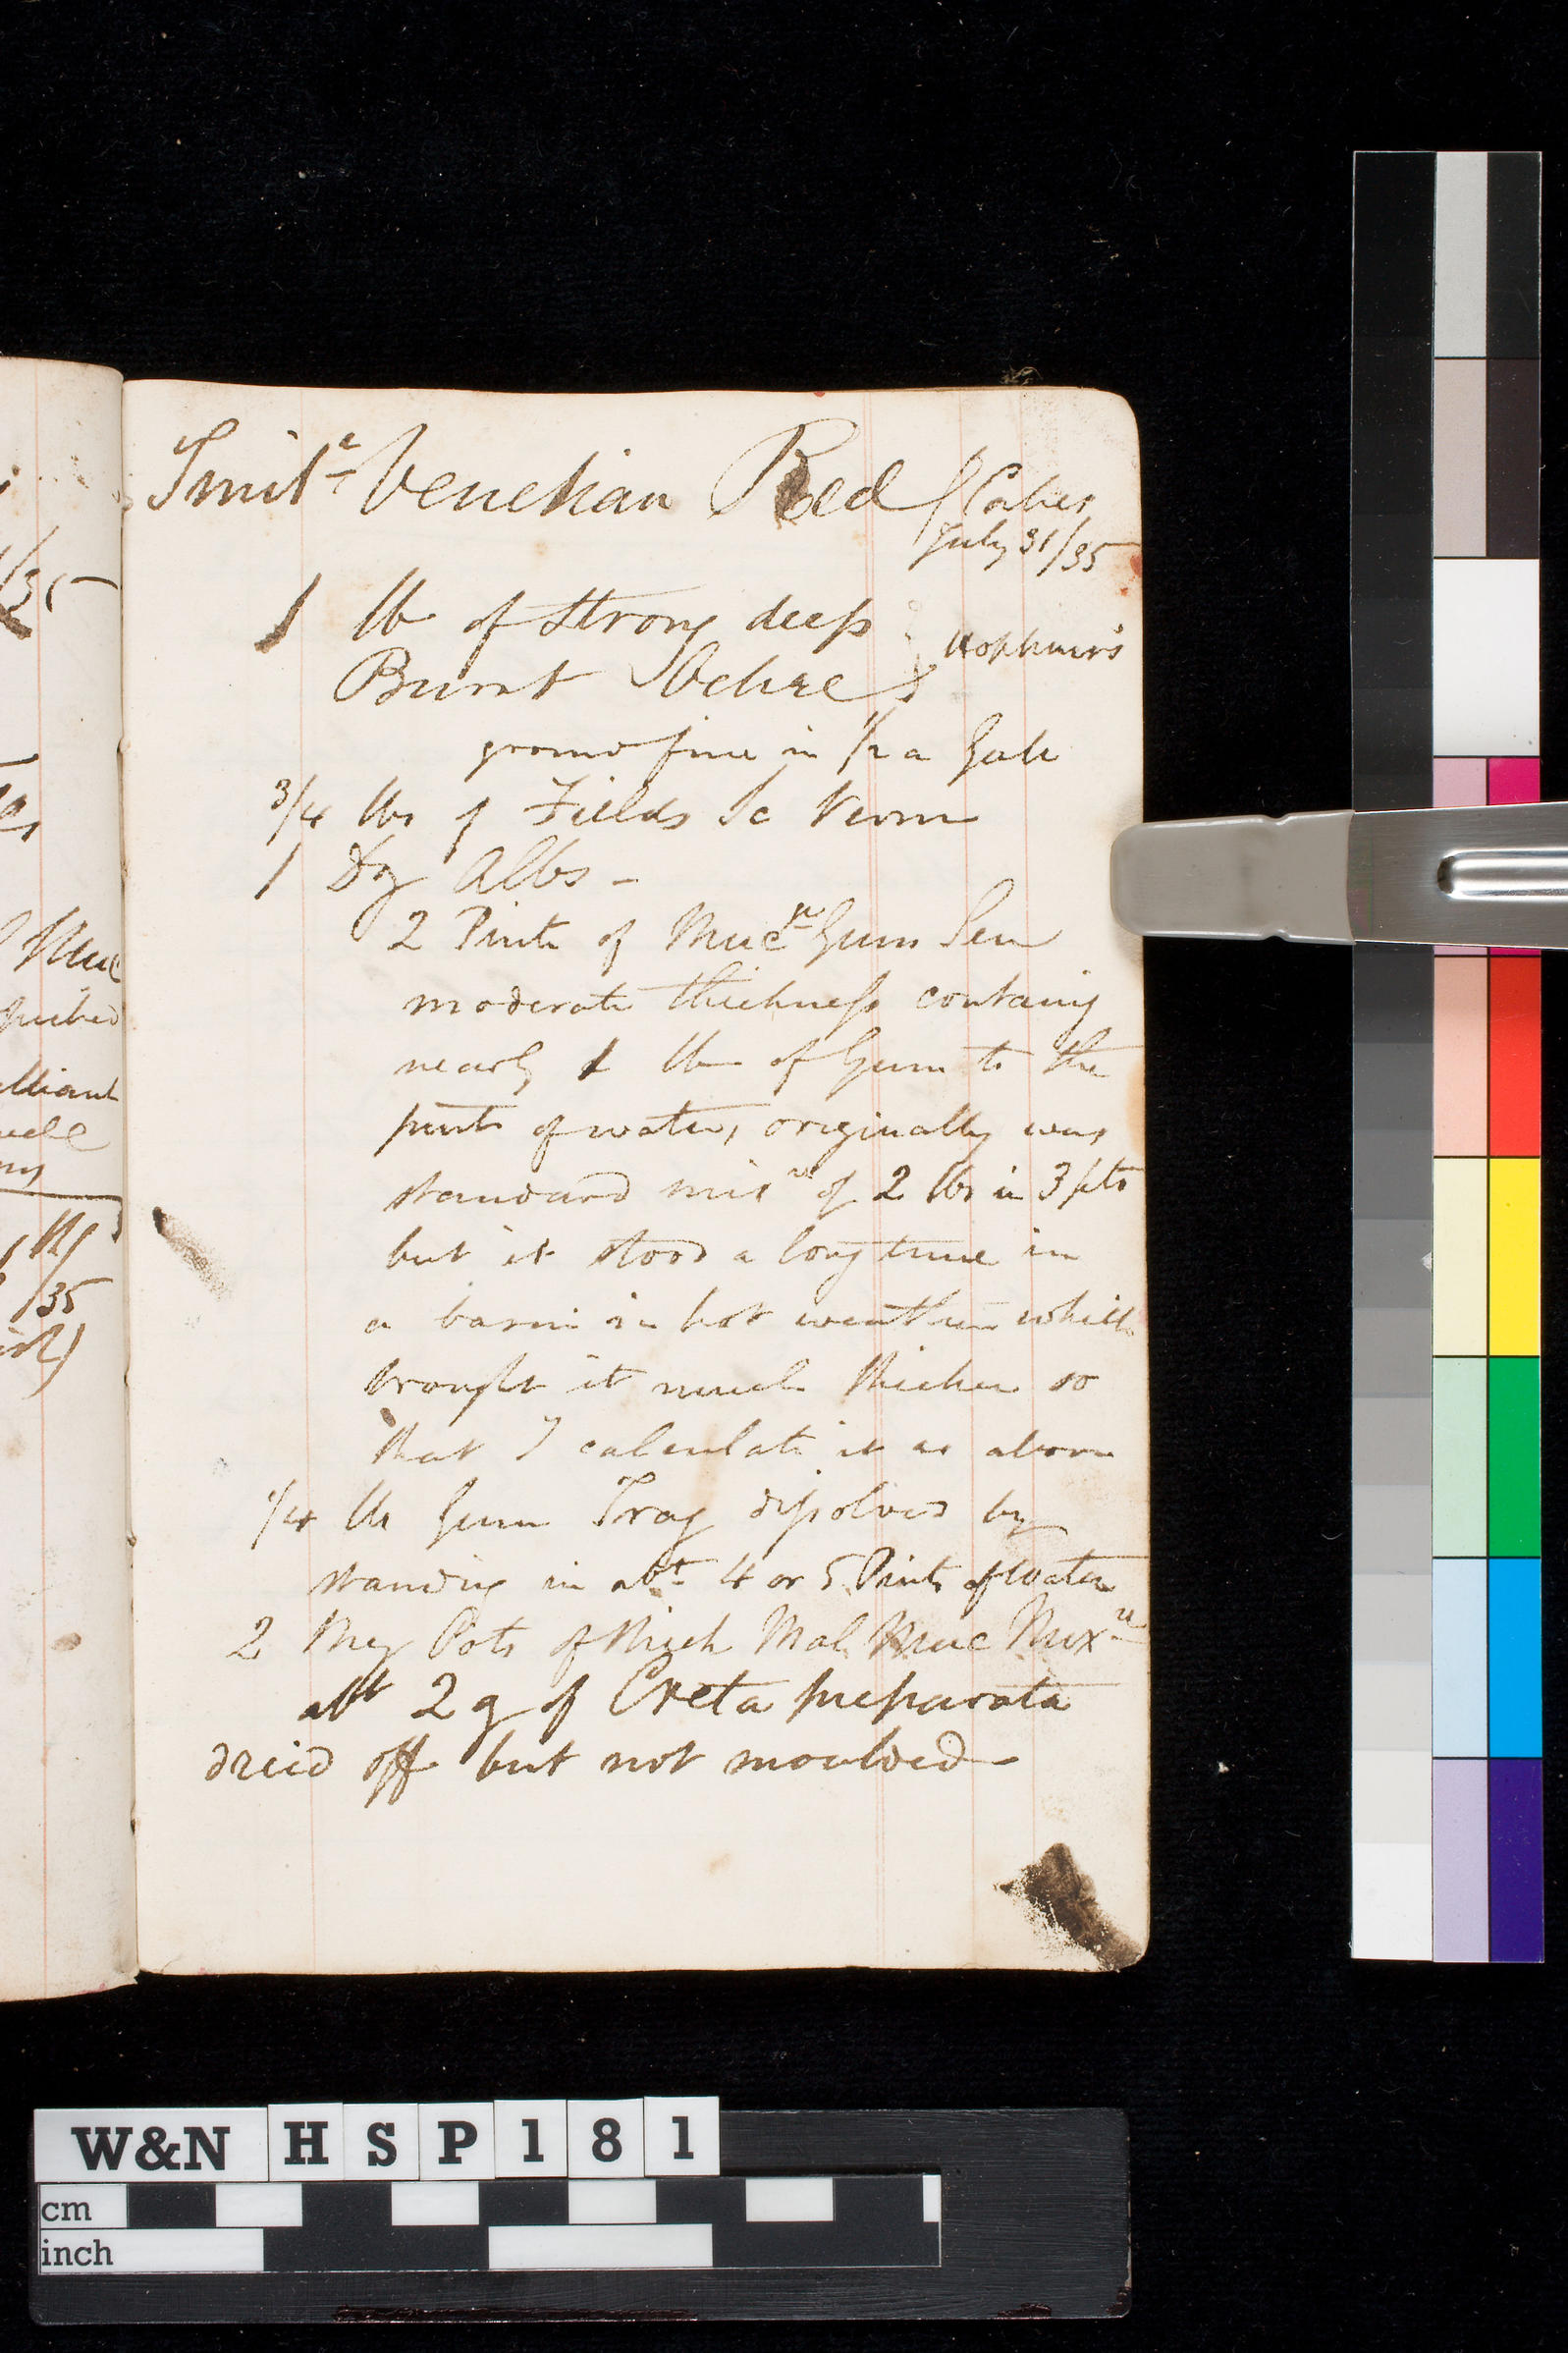 Imit.e Venetian Red / Cakes
July 31/35
1 lb of strong deep
Burnt Ochre } Hopkins's
ground fine in 1/2 a Gall
3/4 lbs of Fields Sc Verm
1 Albs -
2 Pints of Muc Gum Sen
moderate thickness containg
nearly 1 lb of Gum to the
pint of water, originally was
standard mixre of 2 lbs in 3 pts
but it stood a long time in
a basin in hot weather which
brought it much thicker so
that I calculate it as above
1/4 lb Gum Trag dissolved by
standing in abt 4 or 5 Pints of Water
2 Pots of thick Mal Muc Mixre
abt 2 g of Creta preparata
dried off but not moulded
/35
lliant
/35
W&N H S P 1 8 1
cm
inch